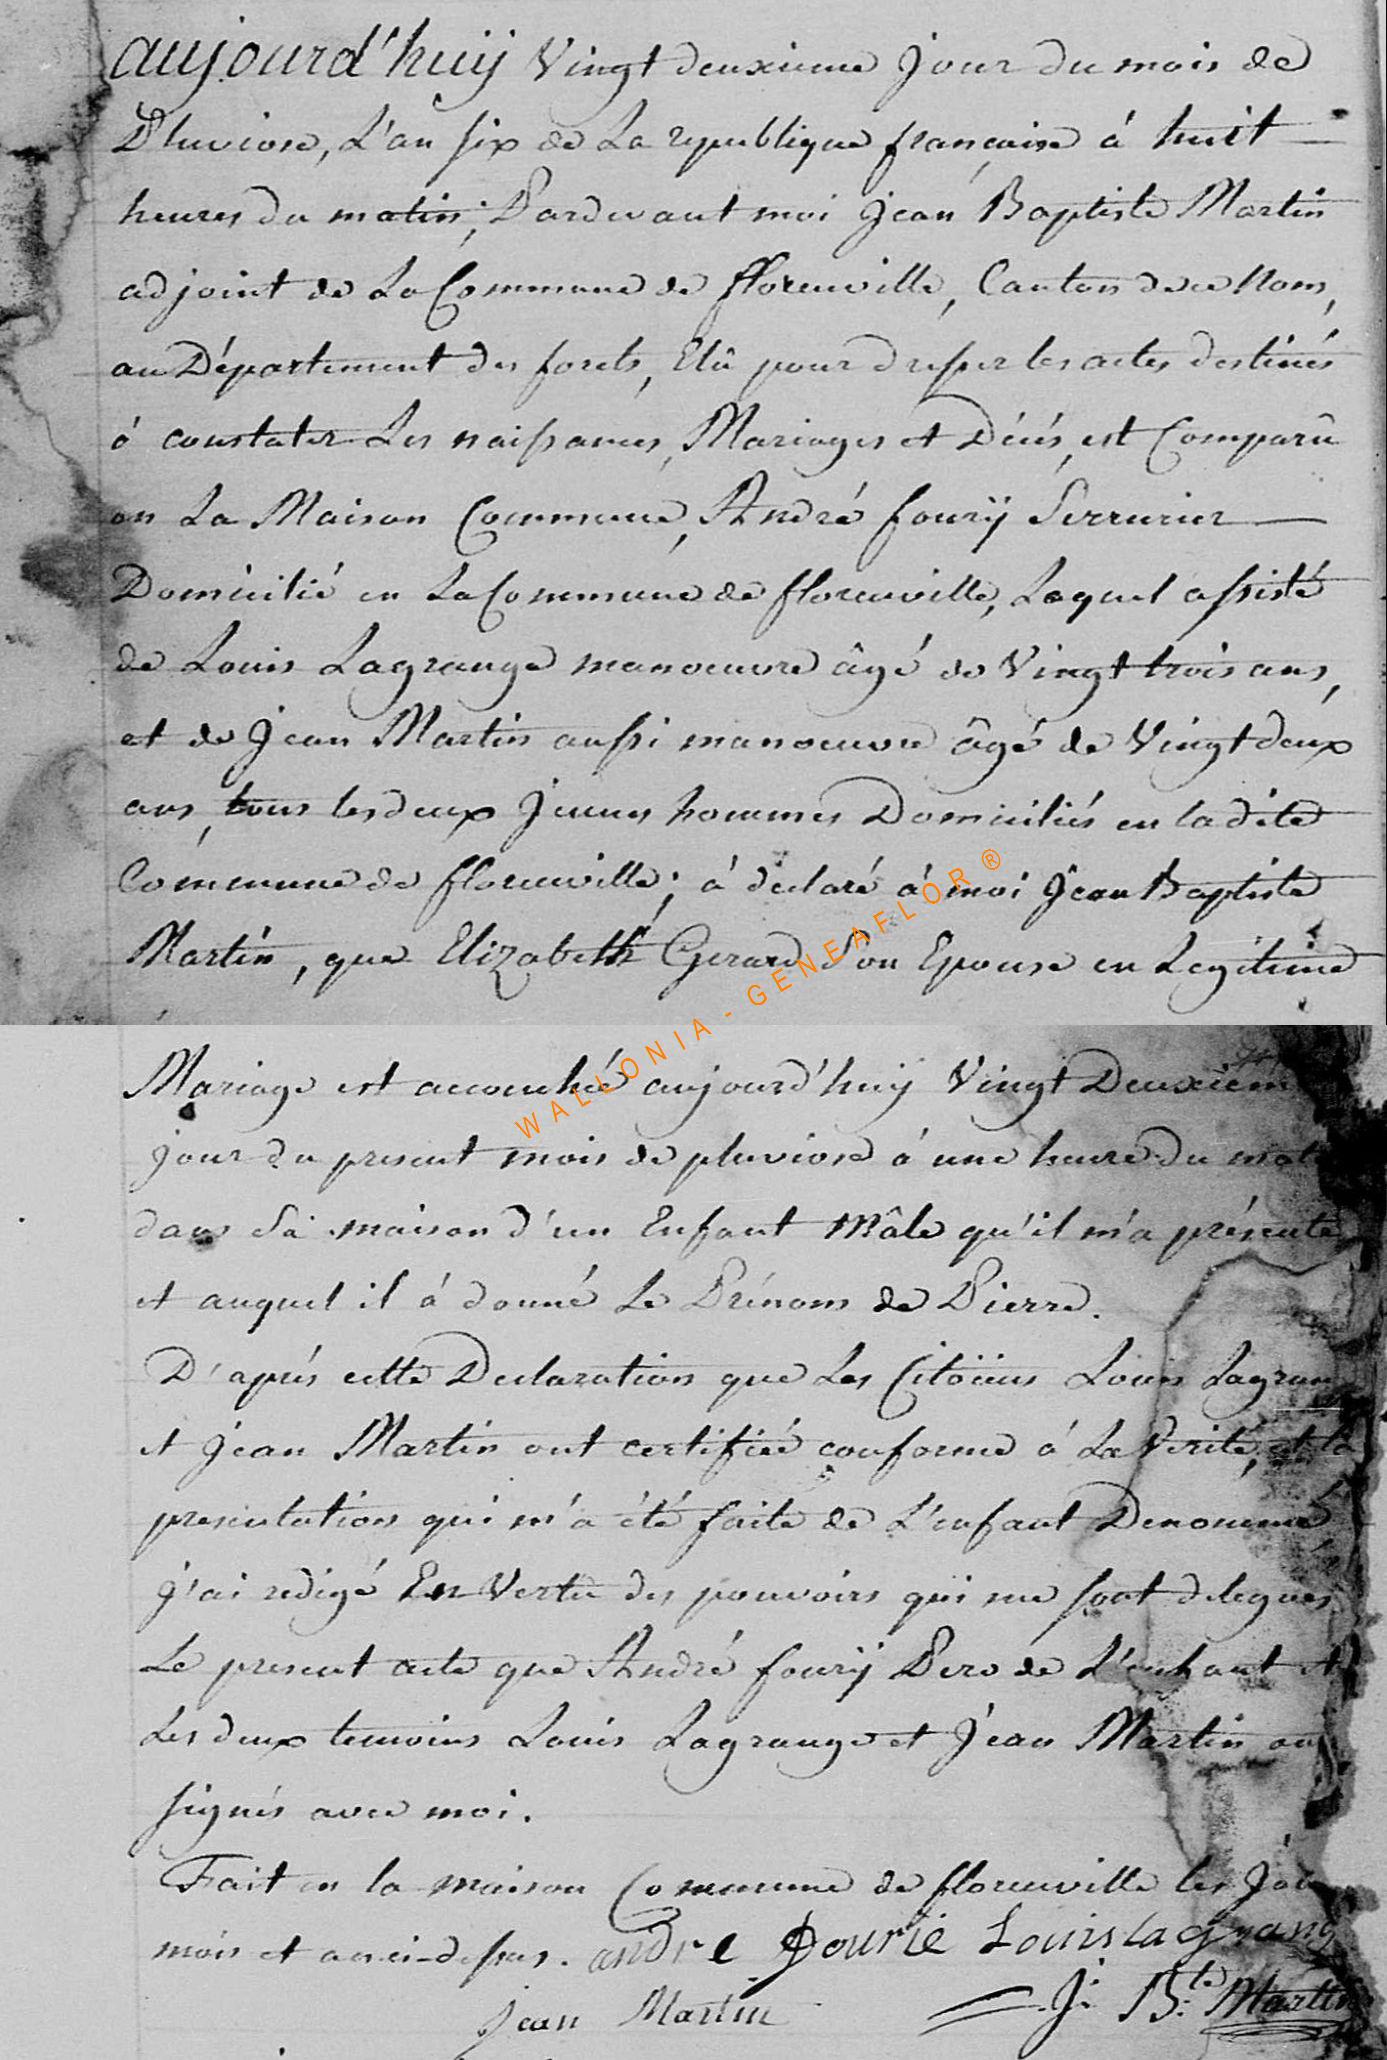 aujourd'huÿ Vingt deuxieme Jour du mois de
Pluviose, L'an six de La republique française à huit
heures du matin; Pardevant moi Jean Baptiste Martin
adjoint de La Commune de fflorenville, Canton de ce Nom,
au Département des forets, Elû pour dresser les actes destinés
à constater Les naissances, Mariages et Décés, est Comparû
en La Maison Commune, André fourÿ Serrurier
Domicilié en La Commune de fflorenville, Lequel assisté
de Louis Lagrange manoeuvre âgé de Vingt trois ans,
et de Jean Martin aussi manoeuvre âgé de Vingt deux
ans, tous les deux Jeunes hommes Domiciliés en la dite
Commune de fflorenville; à déclaré à moi Jean Baptiste
Martin, que Elizabeth Gerard Son Epouse en Legitime
WALLONIA - GENEAFLOR ®
Mariage est accouchée aujourd'huÿ Vingt Deuxiem
jour du present mois de pluviose à une heure du mat
dans Sa maison d'un Enfant Mâle qu'il m'a présenté
et auquel il à donné Le Prénom de Pierre.
D'aprés cette Declaration que Les Citöiens Louis Lagran
et Jean Martin ont certifiée conforme à La Verité, et la
presentation qui m'a été faite de L'enfant Denommé
j'ai redigé En Vertu des pouvoirs qui me sont delegués
Le present acte que André fourÿ Pere de L'enfant et
Les deux temoins Louis Lagrange et Jean Martin on
signés avec moi.
Fait en la maison Commune de fflorenville les Jour
mois et an ci-dessus. andre fourie Louis lagrang
Jean Martin J: B:te Martin